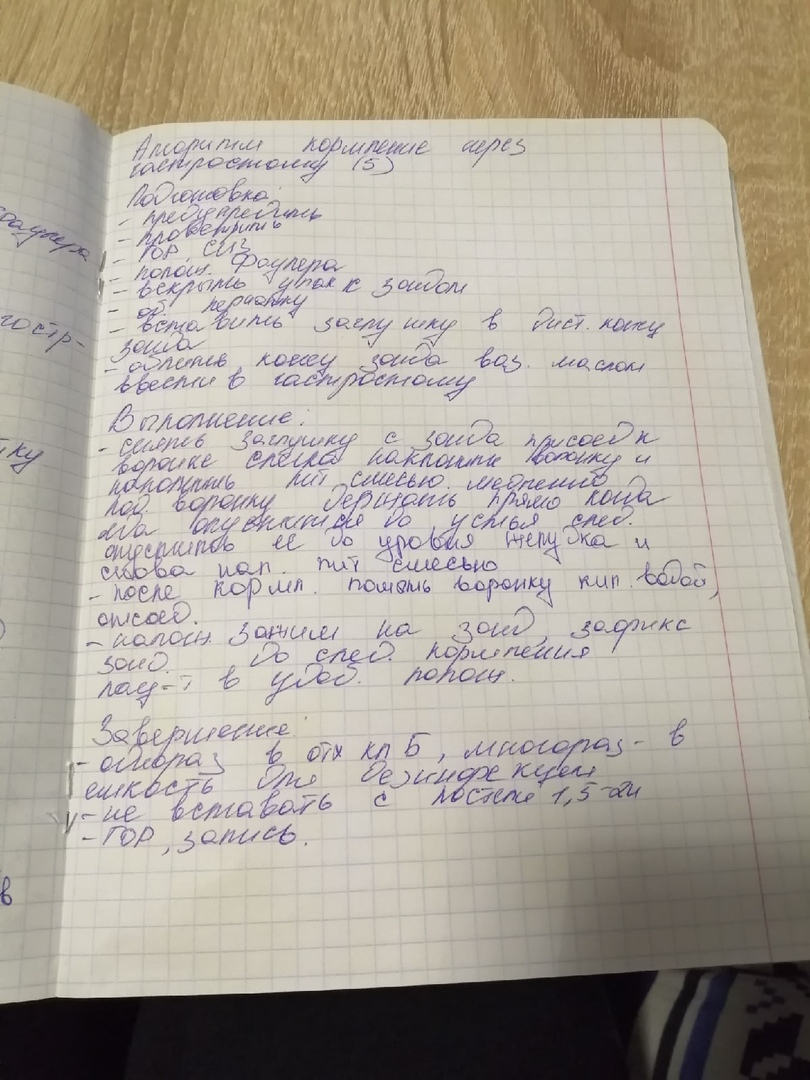 Алгоритм кормление через
гастростому (5)
Подготовка:
- предупредить
- проветрить
- ГОР, СИЗ
- полож. Фаулера
- вскрыть упак с зондом
- об. перчатку
- вставить заглушку в дист. конец
зонда
- облить конец зонда ваз. маслом
ввести в гастростому
Выполнение:
- снять заглушку с зонда присоед к
воронке слегка наклонить воронку и
наполнить пит смесью. медленно
под воронку держать прямо когда
она опустится до устья след.
опустить ее до уровня желудка и
снова нап. пит смесью
- после корм. помыть воронку кип. водой,
отсоед.
- налож. зажим на зонд, зафикс
зонд до след. кормления
пац-т в удоб. полож.
Завершение:
- одНораз в отх кл Б, многораз - в
емкость для дезинфекции
- не вставать с постели 1,5-2ч
- ГОР, запись.
оаулера
гостр-
тку
)
в